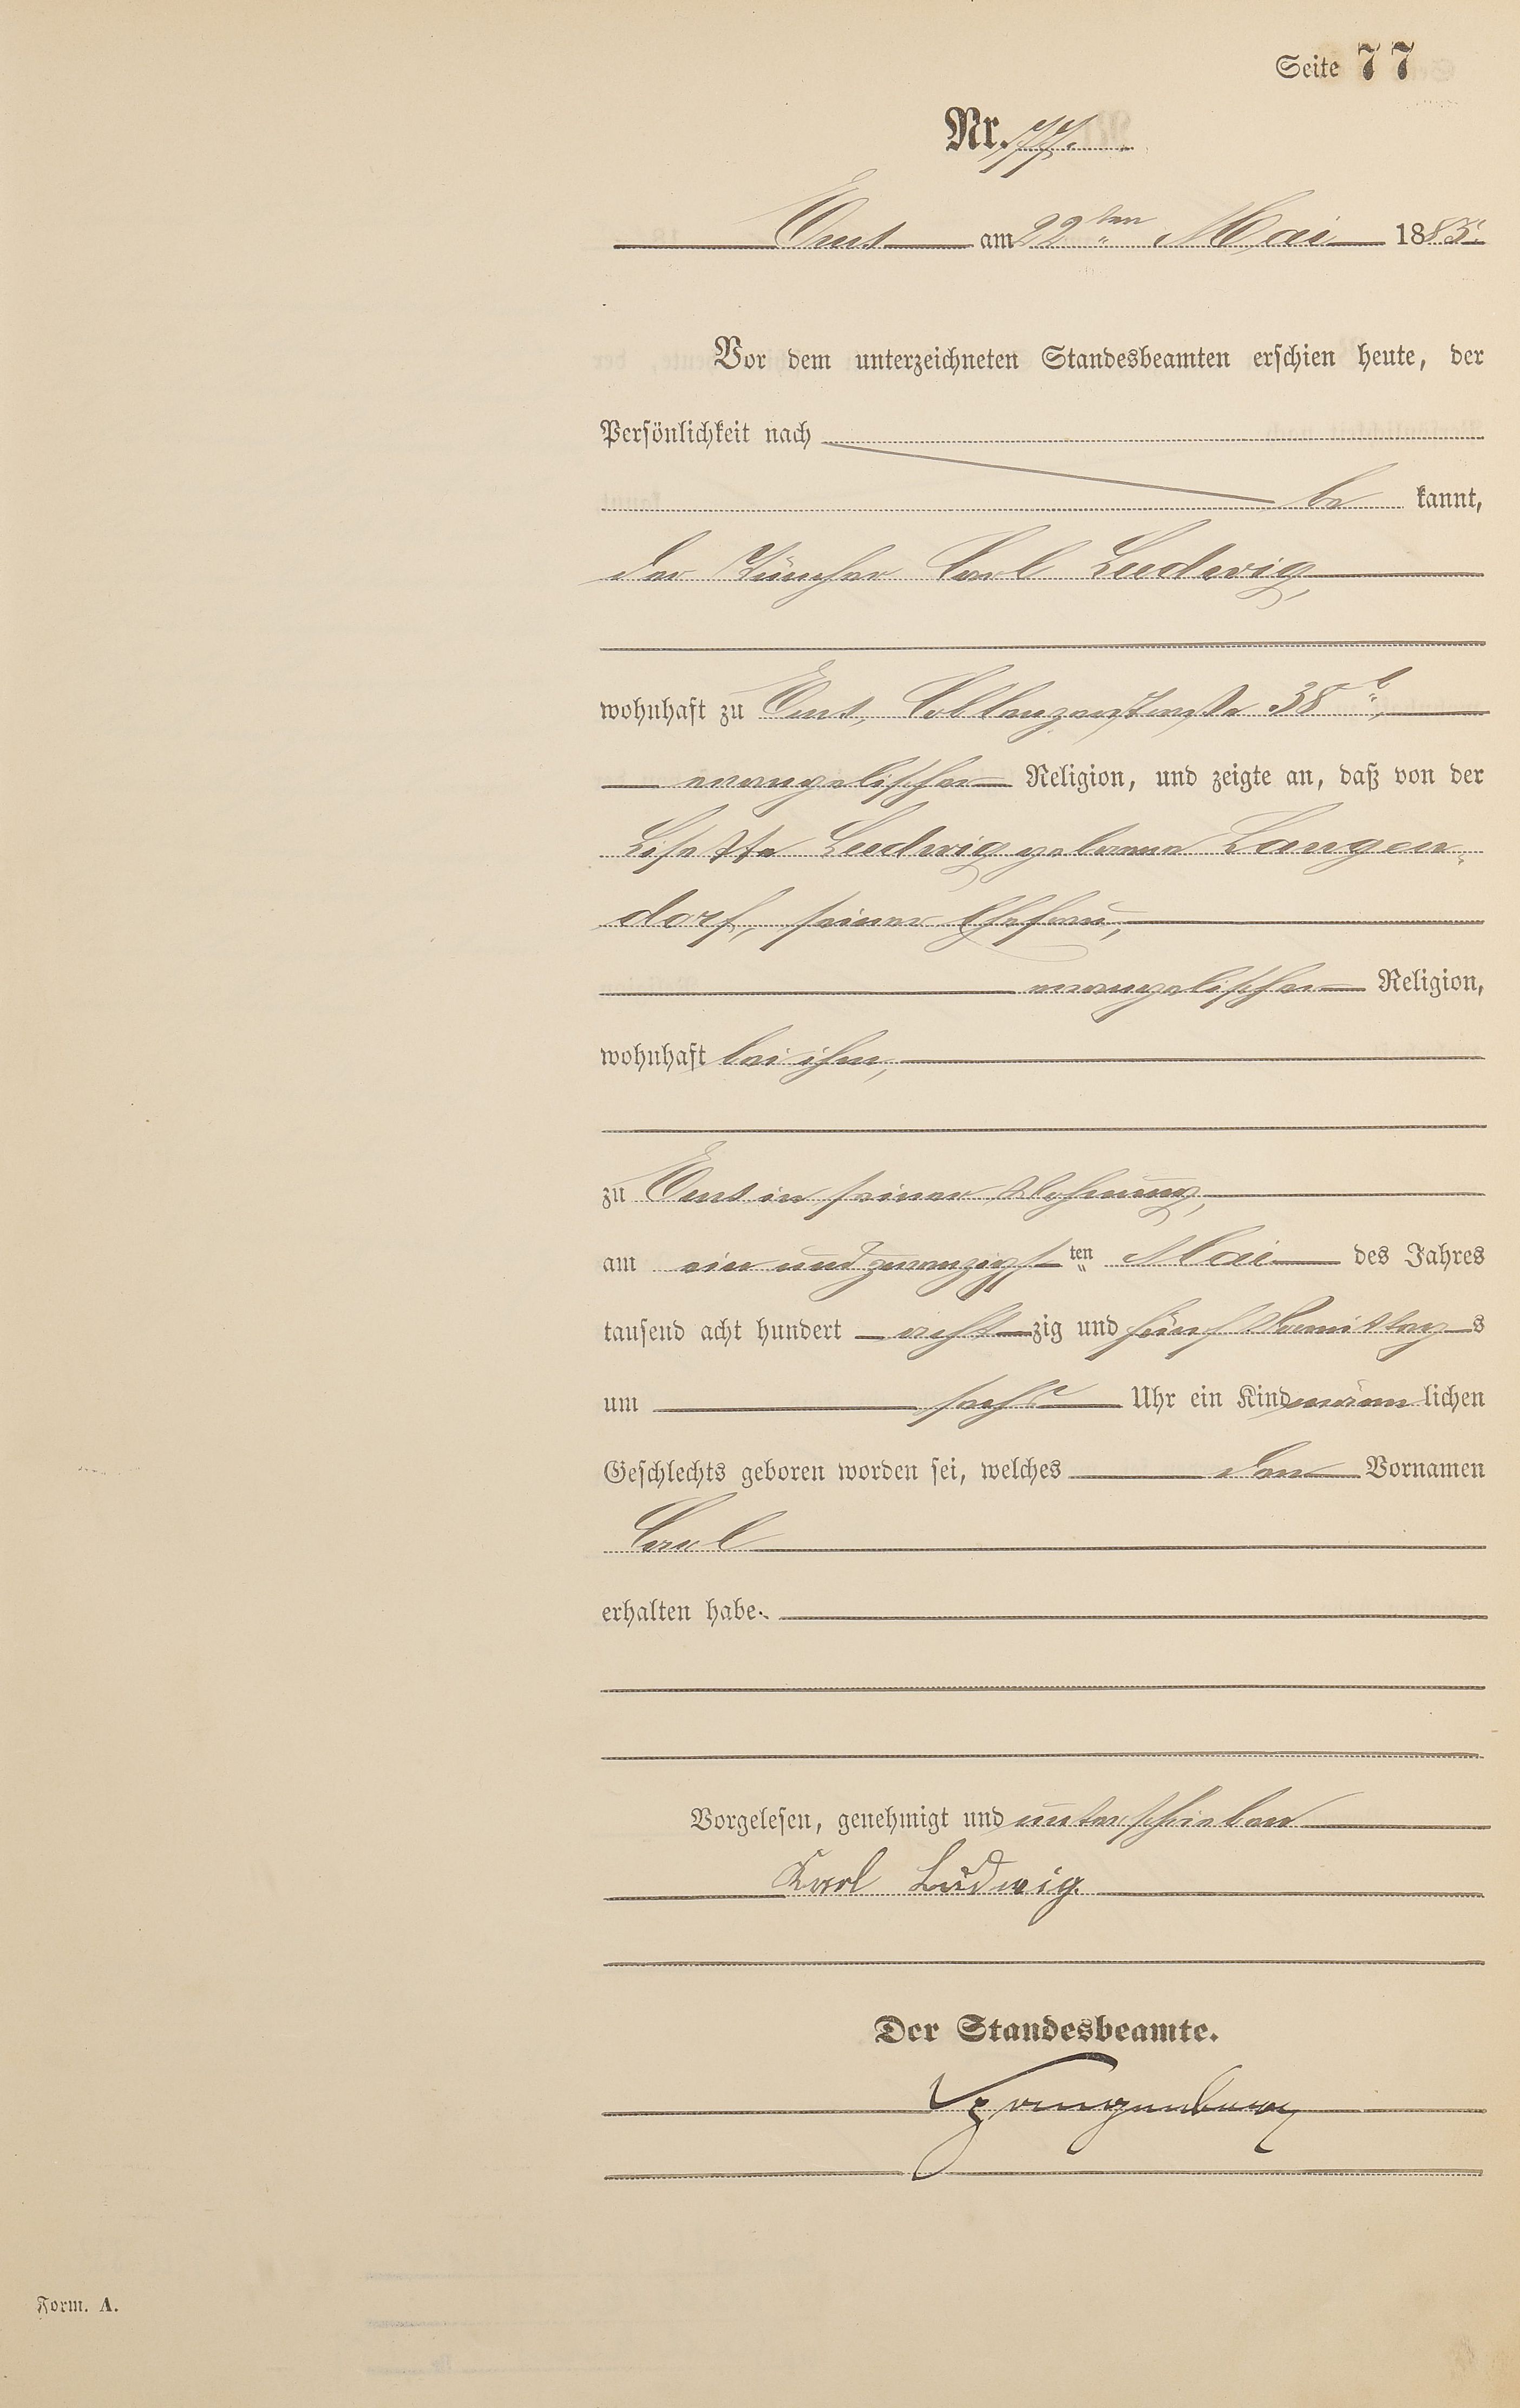 Seite 77
Nr. 77.
Ems am 22ten Mai 1885.
Vor dem unterzeichneten Standesbeamten erschien heute, der
Persönlichkeit nach
be kannt,
der Tüncher Carl Ludwig,
wohnhaft zu Ems, Coblenzerstraße 38 b,
evangelischer Religion, und zeigte an, daß von der
Lisette Ludwig geborene Langen-
dorf, seiner Ehefrau,
evangelischer Religion,
wohnhaft bei ihm,
zu Ems in seiner Wohnung,
am ein und zwanzigsten Mai des Jahres
tausend acht hundert achtzig und fünf Vormittags
um sechs Uhr ein Kind männlichen
Geschlechts geboren worden sei, welches den Vornamen
Carl
erhalten habe.
Vorgelesen, genehmigt und unterschrieben
Karl Ludwig.
Der Standesbeamte.
Form. A.